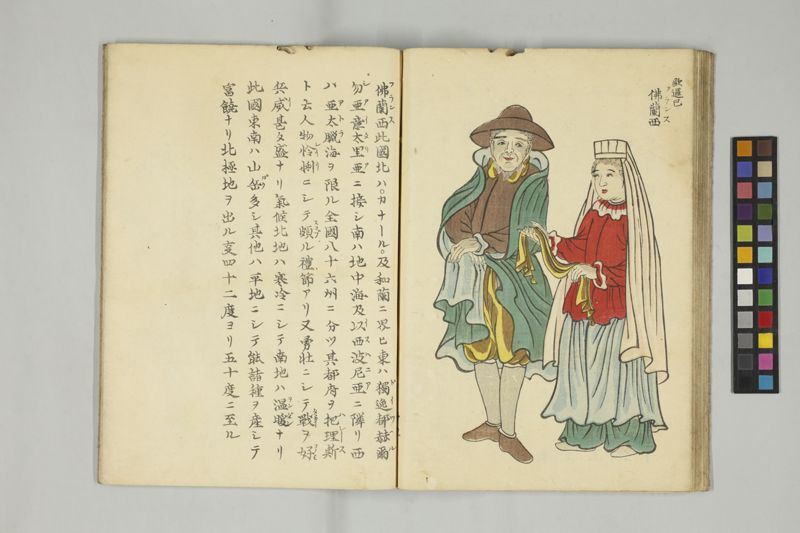 歐邏巴
佛蘭西
フランス
佛蘭西此國北ハ。カナール。及和蘭ニ界ヒ東ハ獨逸都
亜意太里亜ニ接シ南ハ地中海及以西波尼亜ニ隣リ西
ハ亜太臘海ヲ限ル全國八十六州ニ分ツ其都府ヲ把理斯
ト云人物怜悧ニシテ頗ル禮節アリ又勇壮ニシテ戰ヲ好
兵威甚タ盛ナリ氣候北地ハ寒冷ニシテ南地ハ温暖ナリ
此國東南ハ山岳多シ其他ハ平地ニシテ能諸種ヲ産シテ
富饒ナリ北極地ヲ出ル変四十二度ヨリ五十度ニ至ル